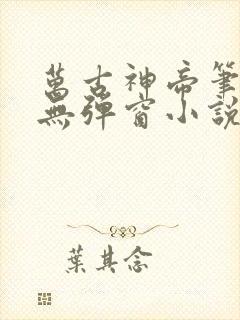 萬古神帝筆
無彈窗小說
葉其念